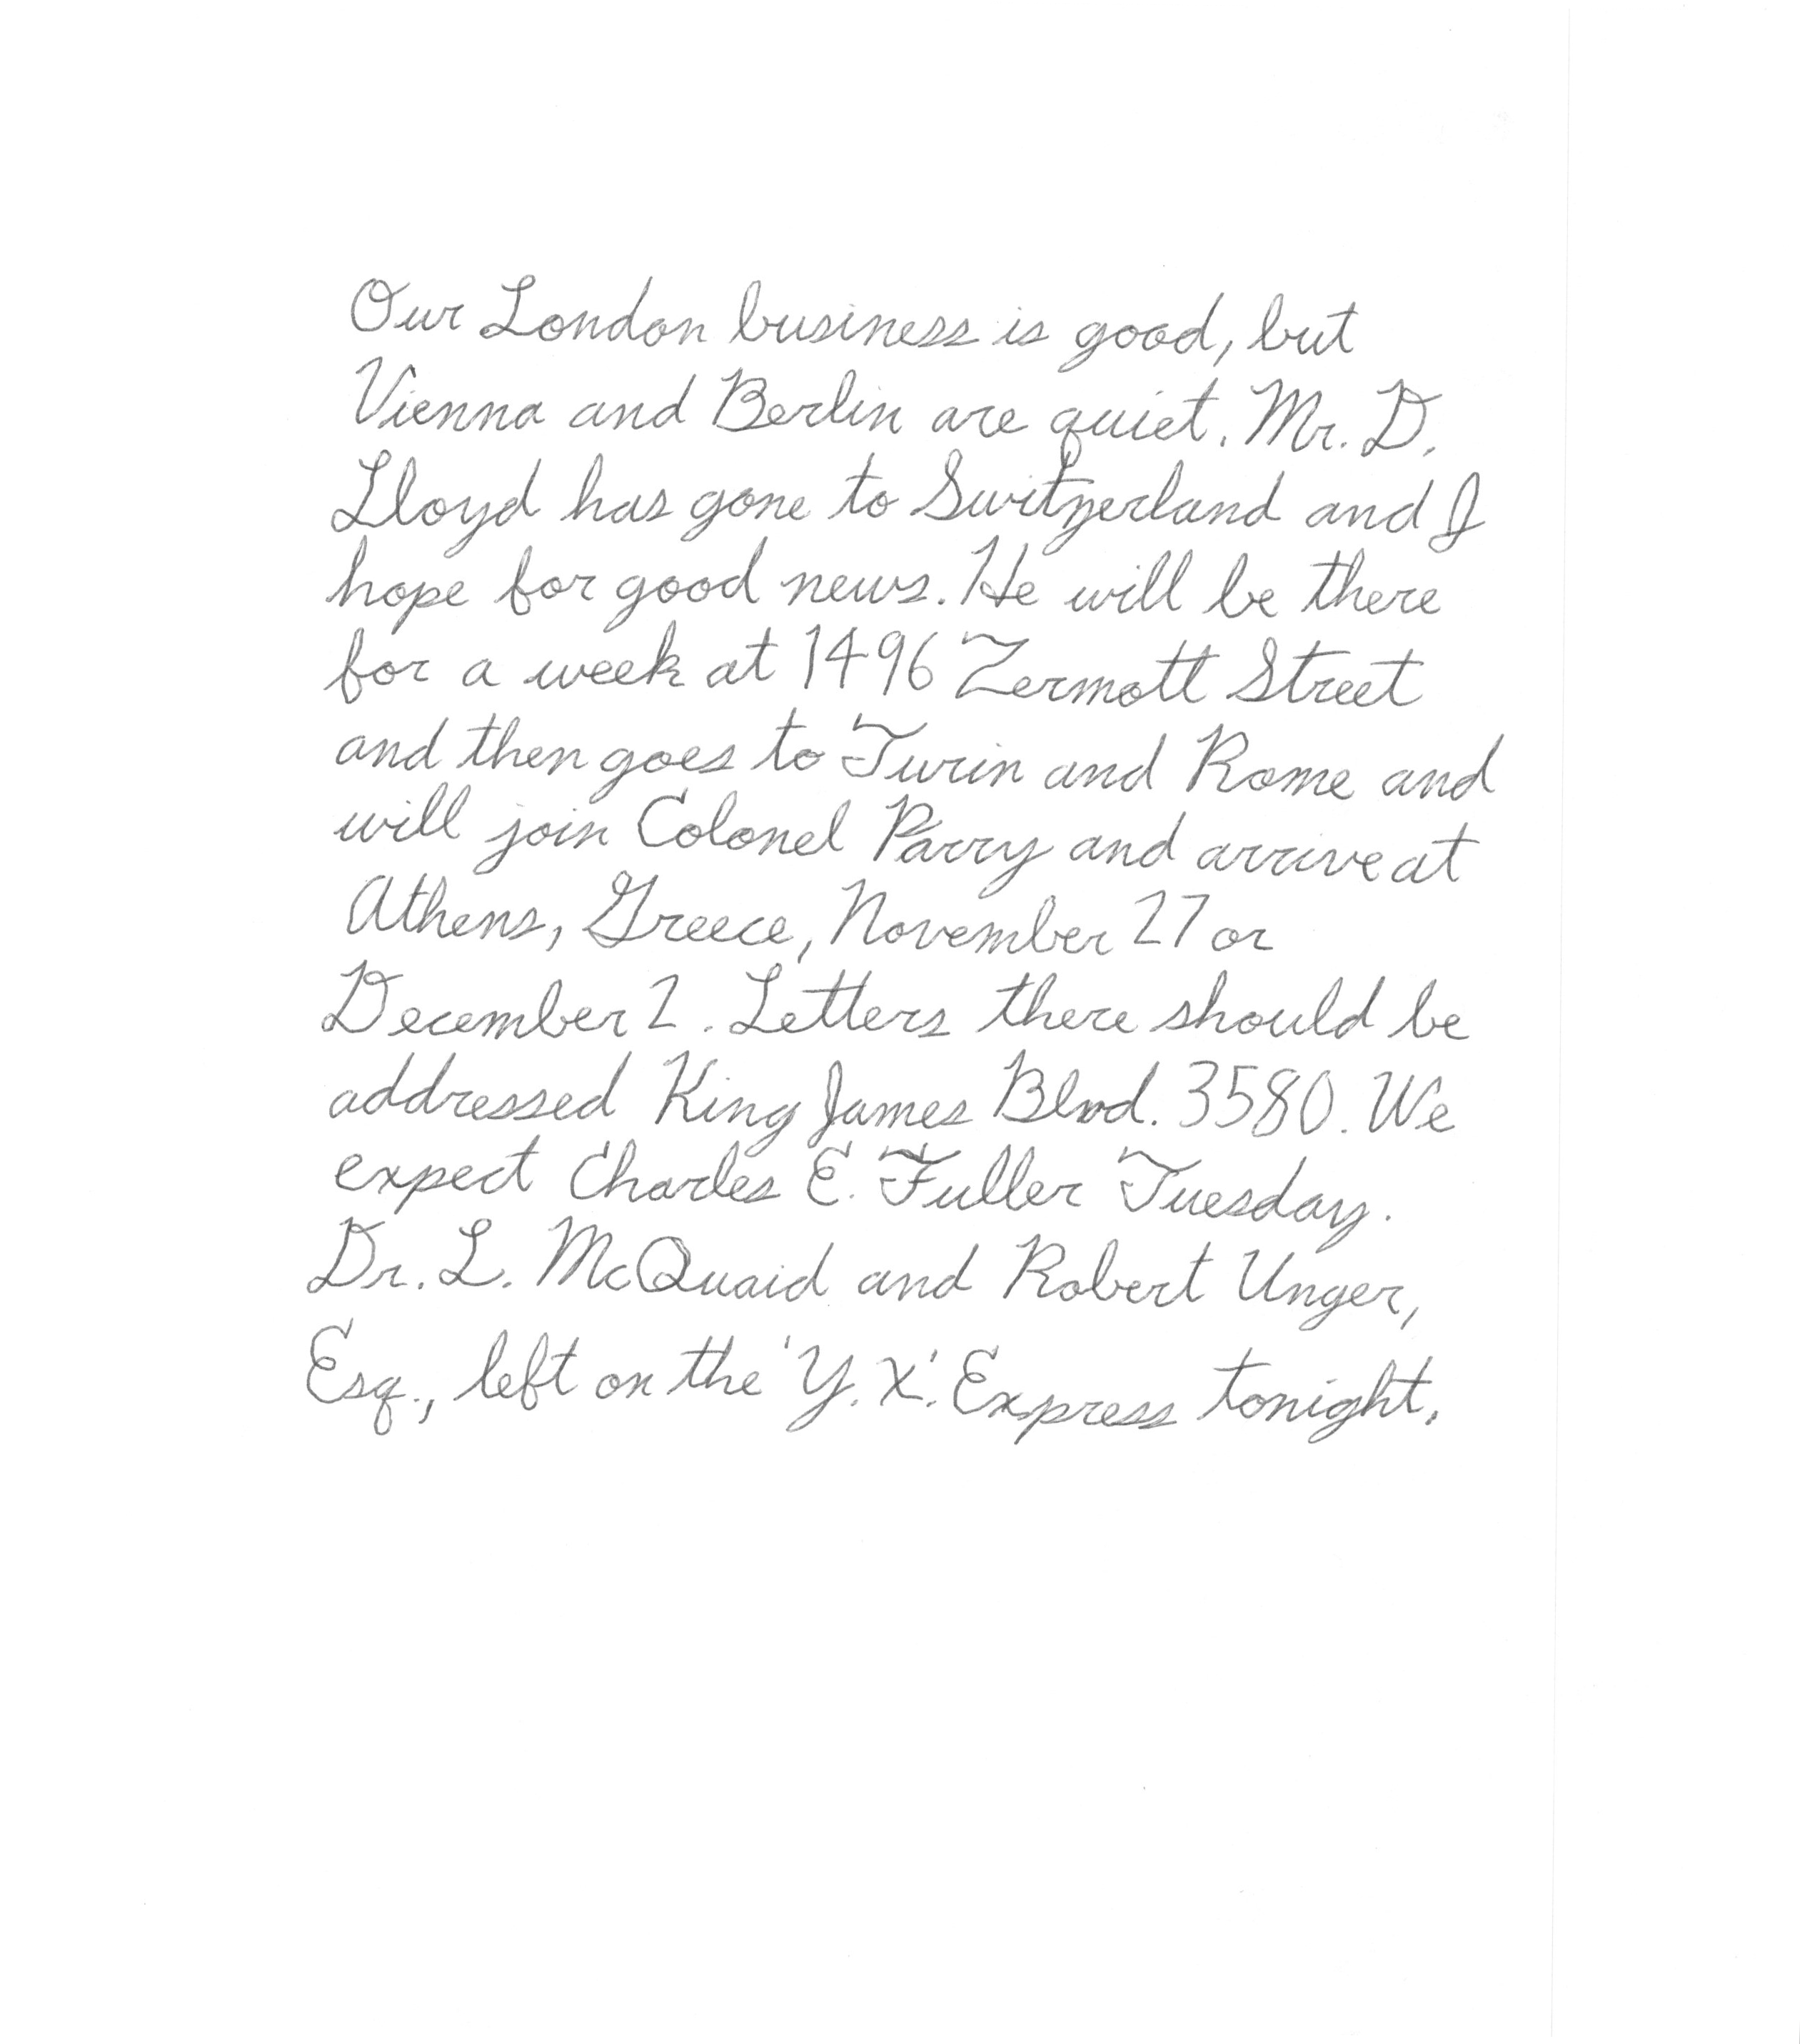 Our London business is good, but
Vienna and Berlin are quiet. Mr. D.
Lloyd has gone to Switzerland and I
hope for good news. He will be there
for a week at 1496 Zermott Street
and then goes to Turin and Rome and
will join Colonel Parry and arrive at
Athens, Greece, November 27 or
December 2. Letters there should be
addressed King James Blvd. 3580. We
expect Charles E. Fuller Tuesday.
Dr. L. McQuaid and Robert Unger,
Esq., left on the 'Y. X.' Express tonight.